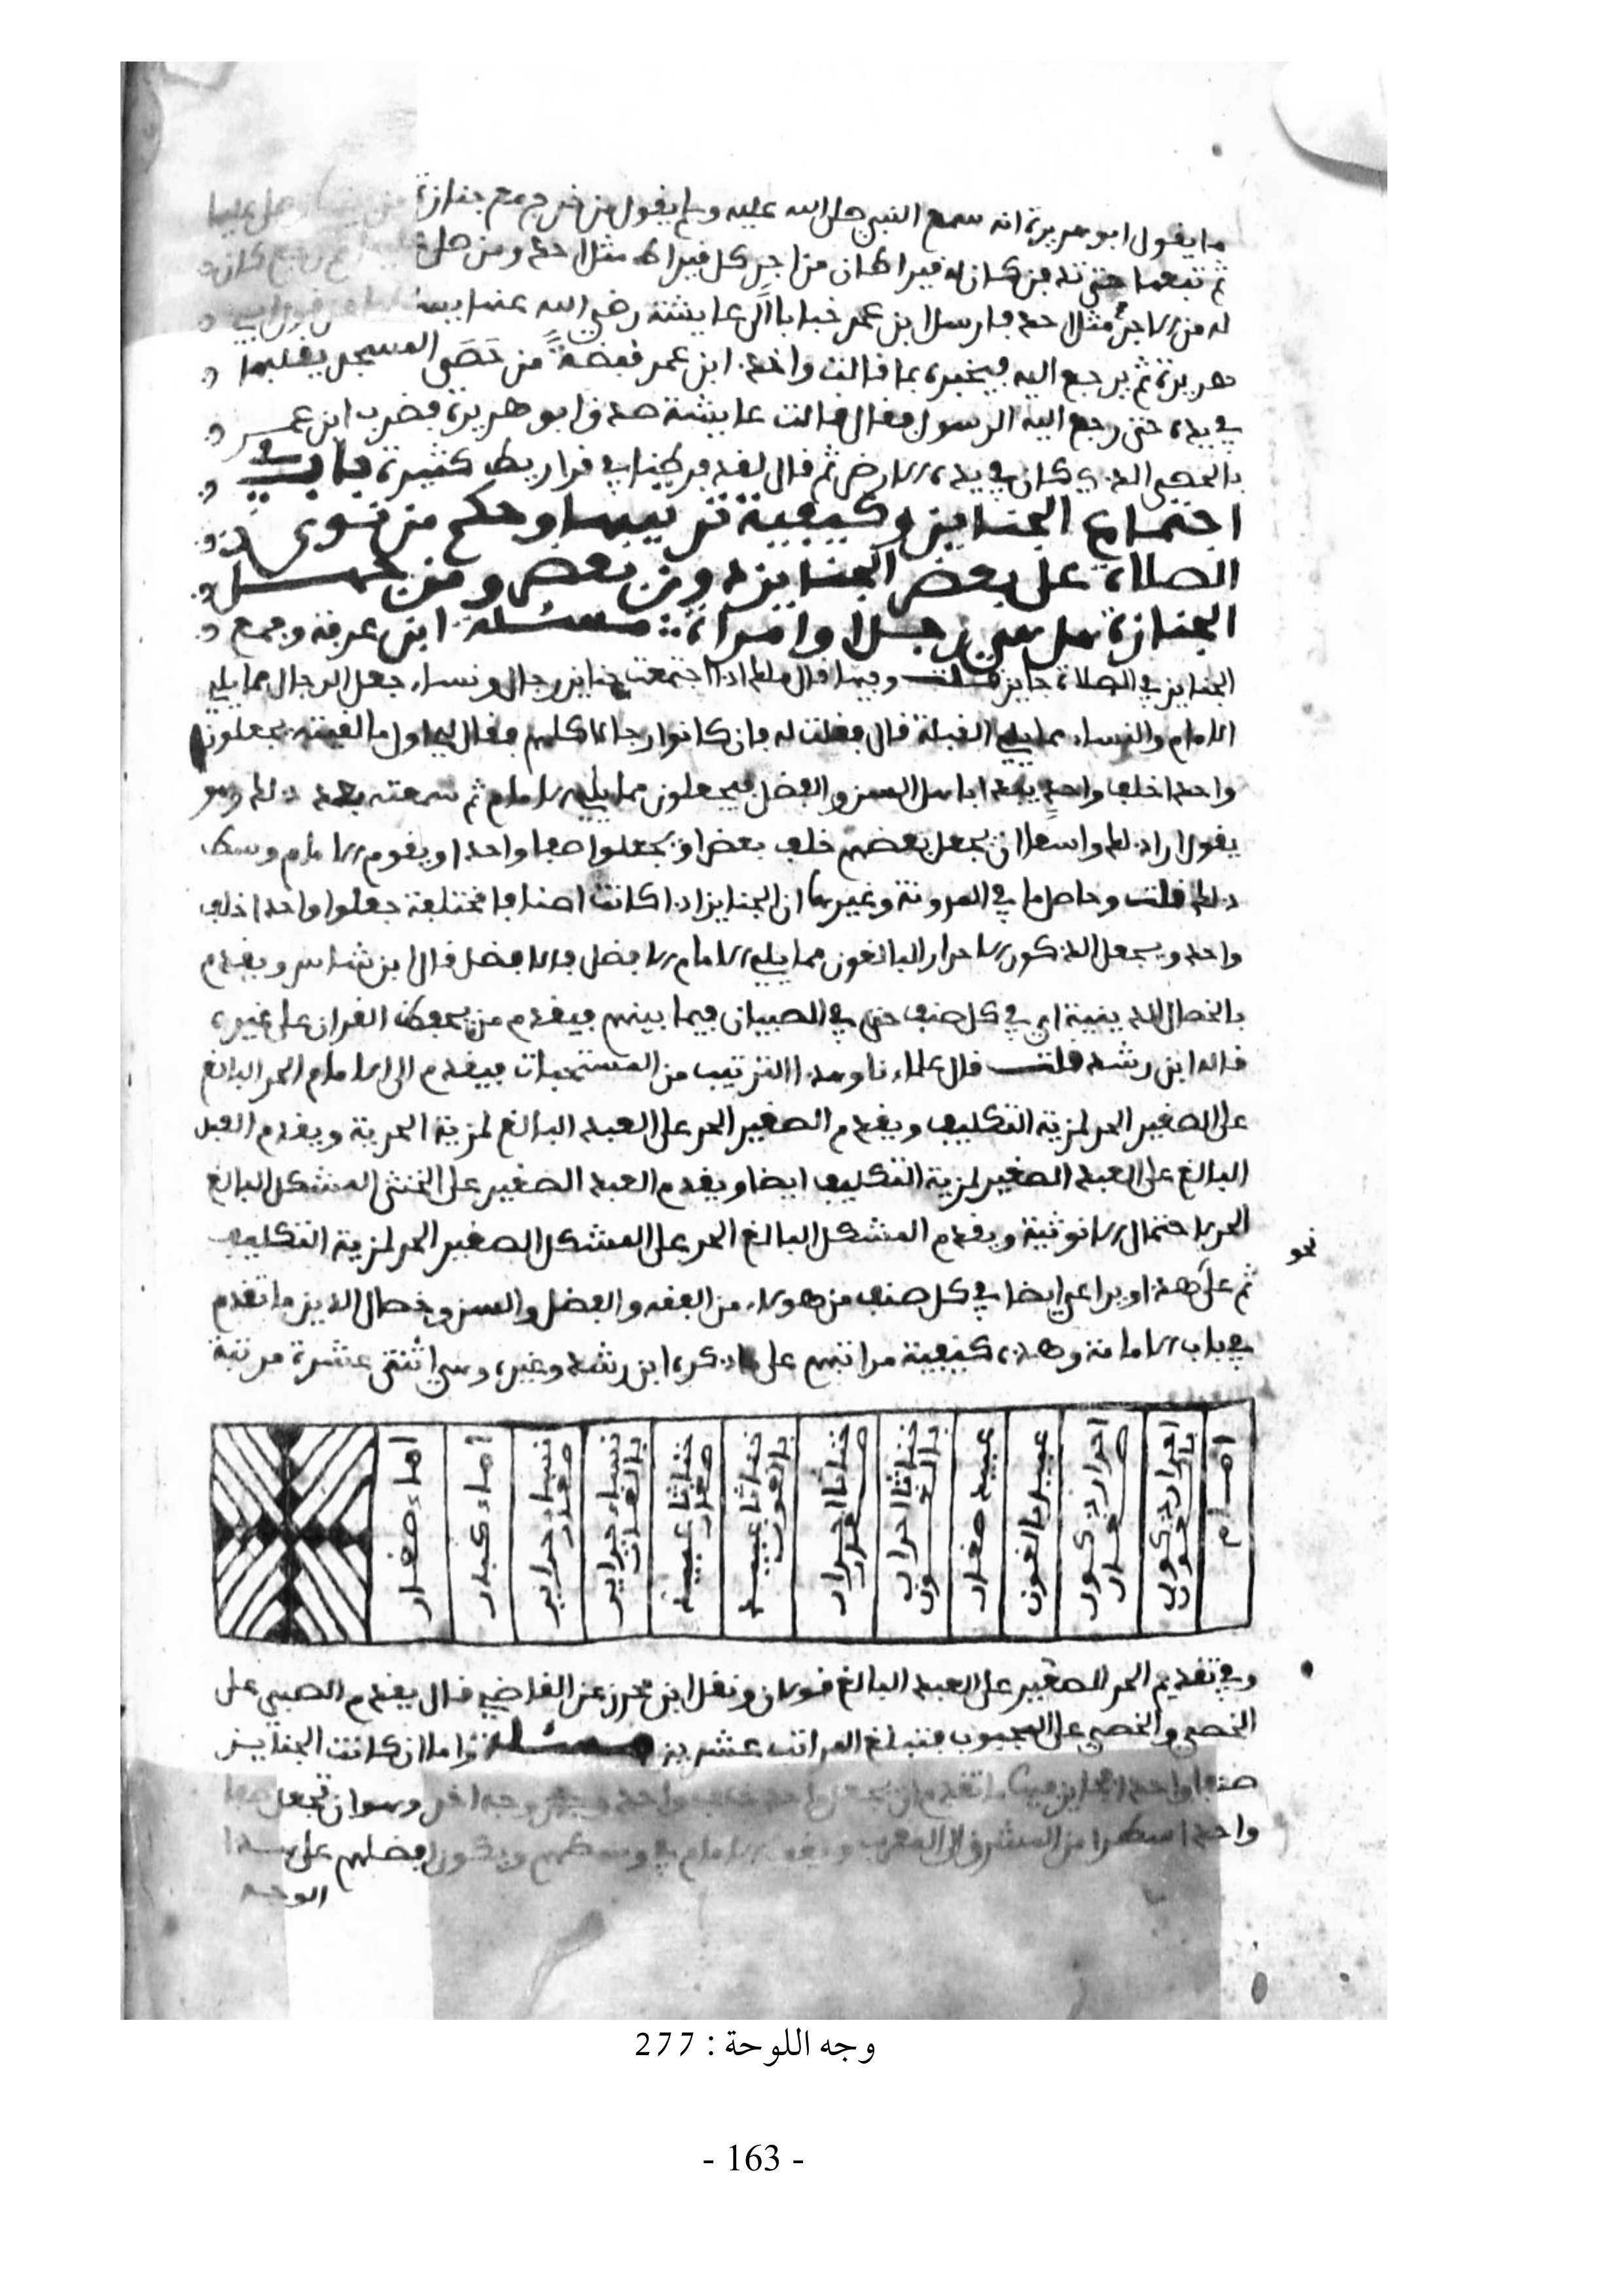 ما يقول ابو هريرة انه سمع النبي صلى الله عليه وسلم يقول من خرج مع جنازة من بيتها وصلى عليها
ثم تبعها حتى تدفن كان له قيراطان من اجر كل قيراط مثل احد ومن صلى عليها ثم رجع كان
له من الاجر مثل احد فارسل ابن عمر خبابا الى عايشة رضي الله عنها يسئلها عن قول ابي
هريرة ثم يرجع اليه فيخبره بما قالت واخذ ابن عمر قبضة من حصى المسجد يقلبها
في يده حتى رجع اليه الرسول فقال قالت عايشة صدق ابو هريرة فضرب ابن عمر
بالحصى الذي كان في يده الارض ثم قال لقد فرطنا في قراريط كثيرة باب في
اجتماع الجنايز وكيفية ترتيبها وحكم من نوى
الصلاة على بعض الجنايز دون بعض ومن جهل
الجنازة هل هي رجلا وامراة مسئلة ابن عرفة وجمع
الجنايز في الصلاة جايز قلت وفيها قال ملك اذا اجتمعت جنايز رجال ونساء جعل الرجال مما يلي
الامام والنساء مما يلي القبلة قال فقلت له فان كانوا رجالا كلهم فقال لي اول ما لقيته يجعلون
واحدا خلف واحد يبدا باهل السن والفضل فيجعلون مما يلي الامام ثم سمعته بعد ذلك وهو
يقول ارا ذلك واسعا ان يجعل بعضهم خلف بعض او يجعلوا صفا واحدا ويقوم الامام وسط
ذلك قلت وحاصل ما في المدونة وغيرها ان الجنايز اذا كانت اصنافا مختلفة جعلوا واحدا خلف
واحد ويجعل الذكور الاحرار البالغون مما يلي الامام الافضل فالافضل قال ابن شاس ويقدم
بالخصال الدينية اي في كل صنف حتى في الصبيان فيما بينهم فيقدم من يحفظ القران على غيره
قاله ابن رشد قلت قال علماءنا وهذا الترتيب من المستحبات فيقدم الى الامام الحر البالغ
على الصغير الحر لمزية التكليف ويقدم الصغير الحر على العبد البالغ لمزية الحرية ويقدم العبد
البالغ على العبد الصغير لمزية التكليف ايضا ويقدم العبد الصغير على الخنثى المشكل البالغ
الحر لاحتمال الانوثية ويقدم المشكل البالغ الحر على المشكل الصغير الحر لمزية التكليف
نحو
ثم على هذا ويراعى ايضا في كل صنف من هولاء من الفقه والفضل والسن وخصال الدين ما تقدم
في باب الامامة وهذه كيفية مراتبهم على ما ذكره ابن رشد وغيره وهي اثنتى عشرة مرتبة
امام
احرار ذكور بالغون
احرار ذكور صغار
عبيد بالغون
عبيد صغار
خناثا احرار بالغون
خناثا احرار صغار
خناثا عبيد بالغون
خناثا عبيد صغار
نساء حراير بالغات
نساء حراير صغار
اماء كبار
اماء صغار
وفي تقديم الحر الصغير على العبد البالغ قولان ونقل ابن محرز عن القاضي قال يقدم الصبي على
الخصي والخصي على المجبوب فتبلغ المراتب عشرين مسئلة واما ان كانت الجنايز
صنفا واحدا فجايز فيها ما تقدم ان يجعل واحد خلف واحد وجه اخر وهو ان تجعل صفا
واحدا سطرا من المشرق الى المغرب ويقف الامام في وسطهم ويكون افضلهم على هذا
الوجه
وجه اللوحة : 277
- 163 -